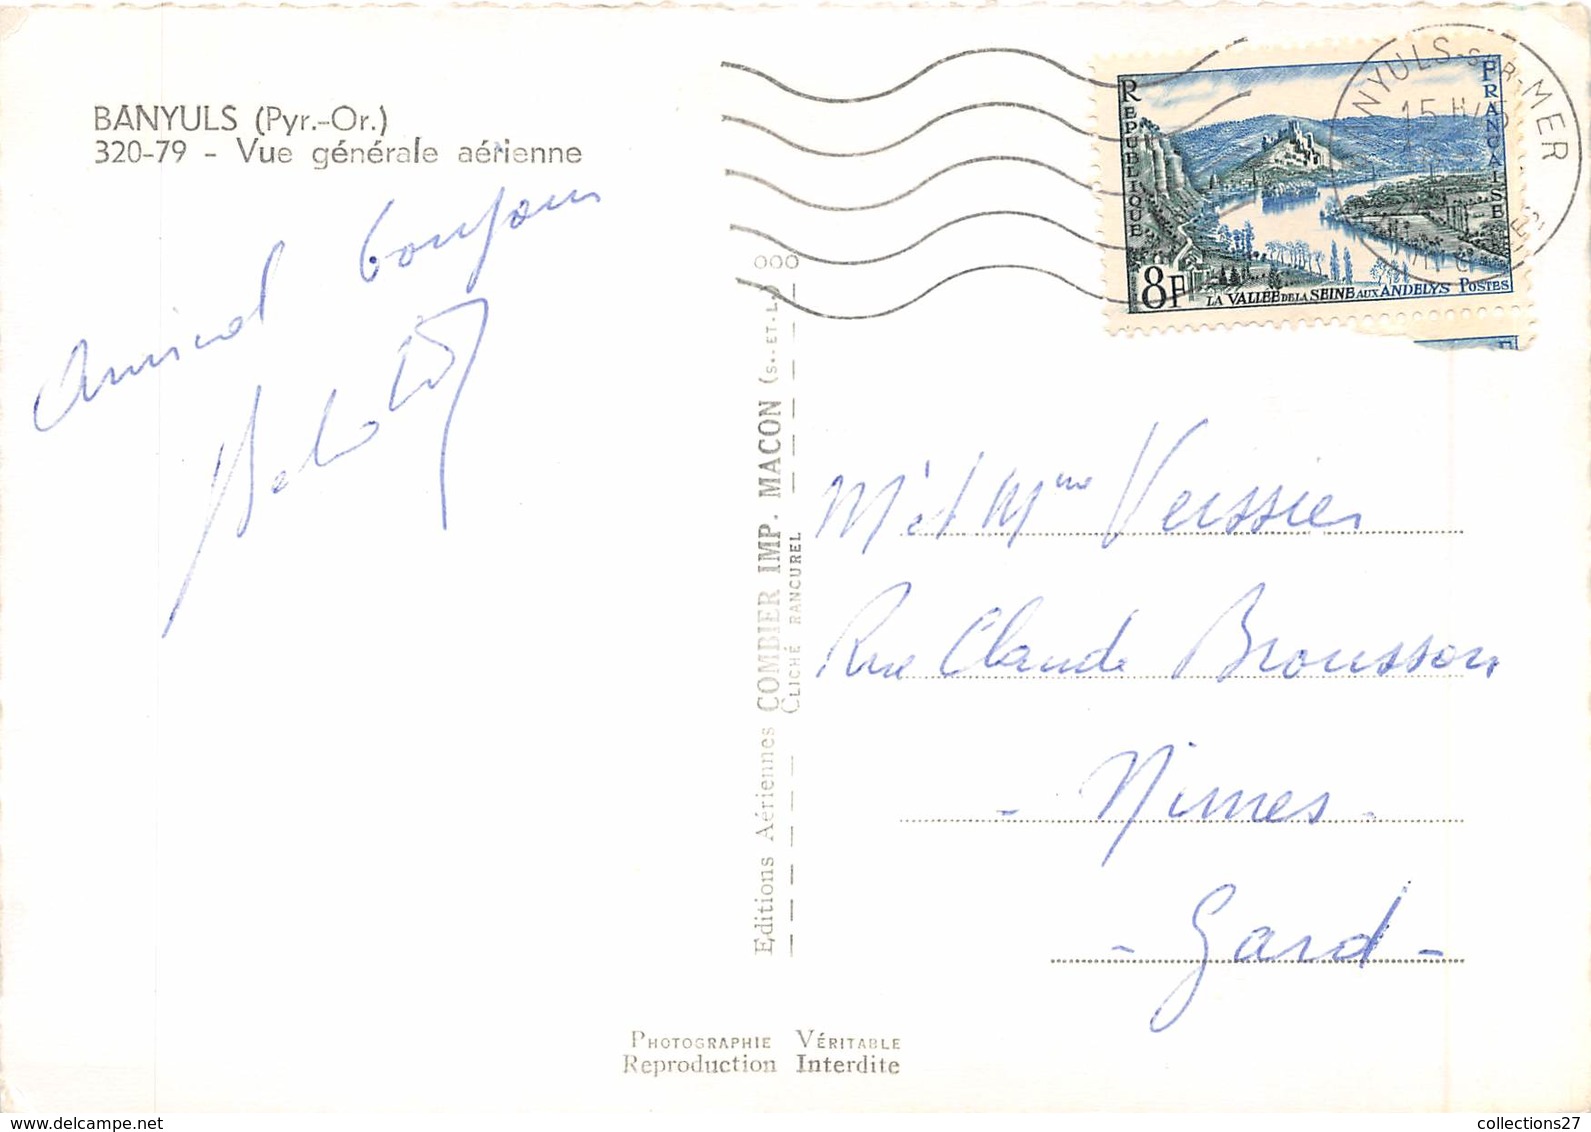 BANYULS (Pyr.-Or.)
320-79 - Vue générale aérienne
Amical bonjour
RÉPUBLIQUE
FRANÇAISE
8F
LA VALLÉE DE LA SEINE AUX ANDELYS POSTES
NYULS-SUR-MER
15 H
Editions Aériennes COMBIER IMP. MACON (S.-ET-L.) 000
CLICHÉ RANCUREL
Mr et Mme Veissier
Rue Claude Brousson
- Nimes -
- Gard -
PHOTOGRAPHIE VÉRITABLE
Reproduction Interdite
www.delcampe.net
collections27